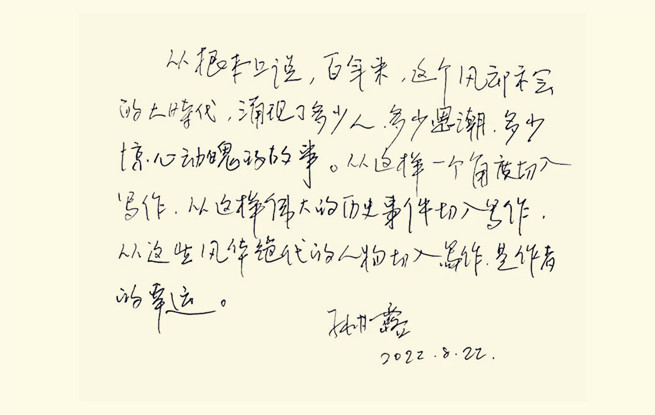 从根本上说，百年来，这个风云际会
的大時代，涌现了多少人，多少思潮，多少
惊心动魄的故事。从这样一个角度切入
写作，从这样伟大的历史事件切入写作，
从这些风华绝代的人物切入写作，是作者
的幸运。
孙甘露
2022.8.22.